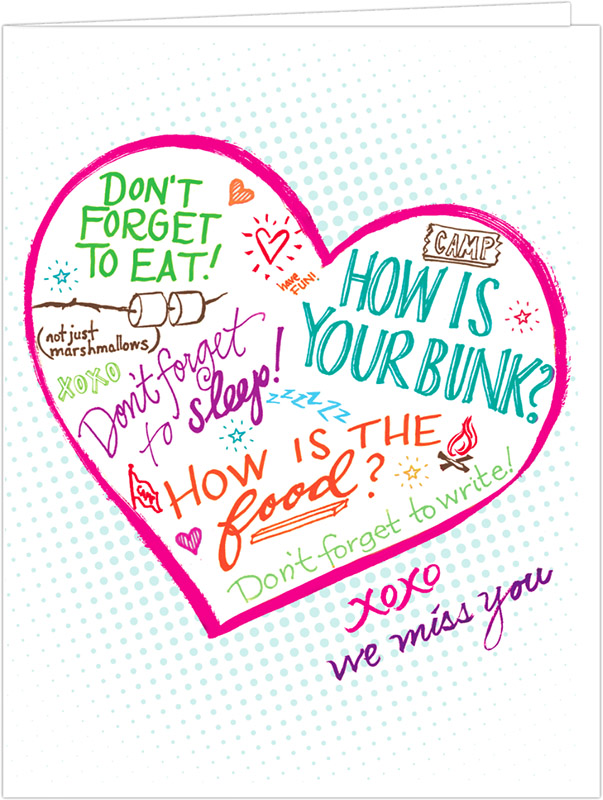 DON'T
FORGET
TO EAT!
have
FUN!
CAMP
HOW IS
YOUR BUNK?
(not just
marshmallows)
xoxo
Don't forget
to sleep!
zzzzzz
HOW IS THE
food?
Don't forget to write!
xoxo
we miss you